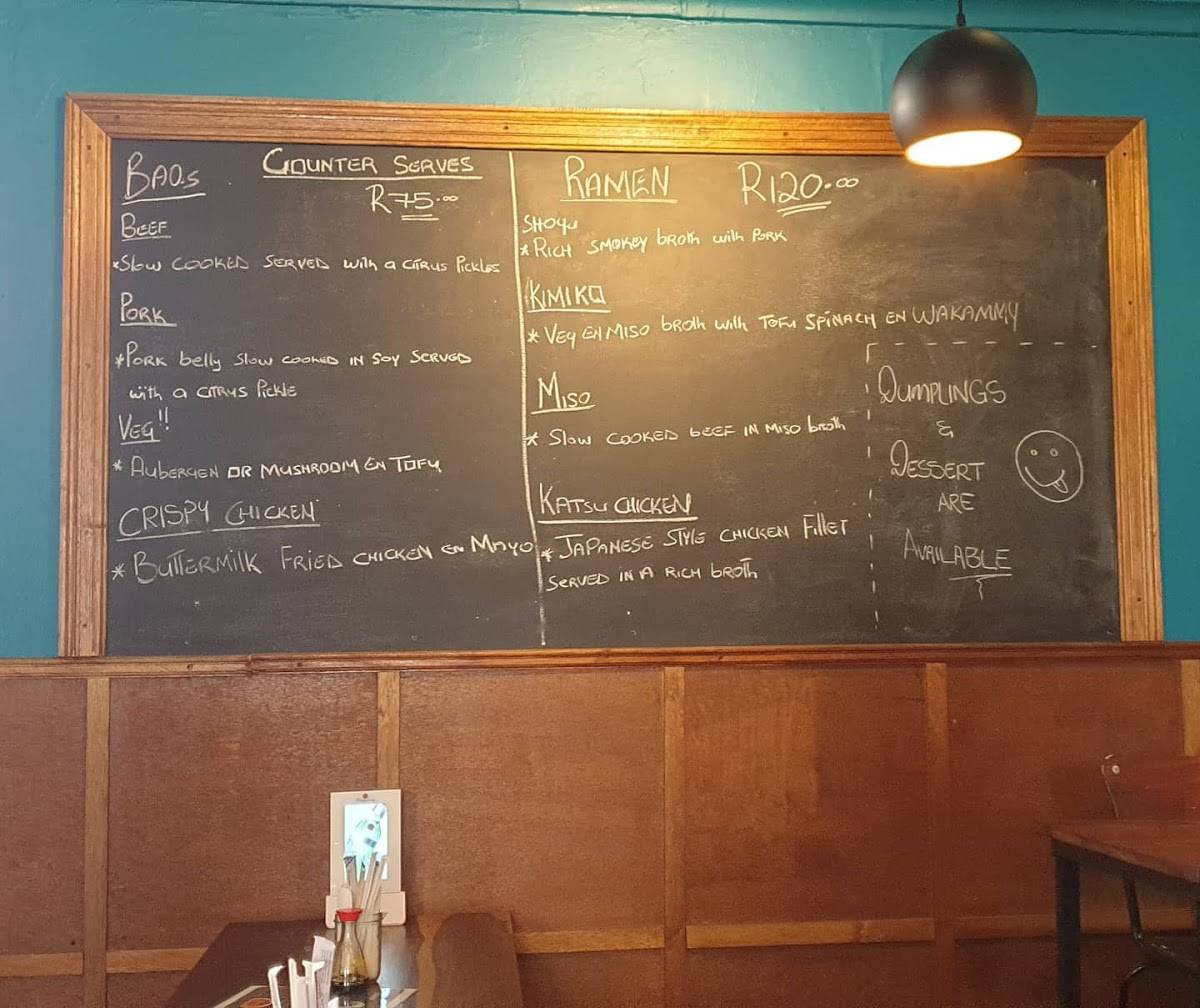 BAO.s
COUNTER SERVES
R75.00
BEEF
*Slow COOKED SERVED with a CITRUS Pickles
PORK
*PORK belly Slow COOKED IN SOY SERVED
with a CITRUS Pickle
VEG!!
* AUBERGEN OR MUSHROOM EN TOFU
CRISPY CHICKEN
* BUTTERMILK FRIED CHICKEN EN MAYO
RAMEN R120.00
SHOYU
*RICH SMOKEY broth with PORK
KIMIKO
* VEG EN MISO broth with TOFU SPINACH EN WAKAMMY
MISO
* Slow COOKED BEEF IN MISO broth
KATSU CHICKEN
* JAPANESE STYLE CHICKEN FILLET
SERVED IN A RICH broth
DUMPLINGS
&
DESSERT
ARE
AVAILABLE